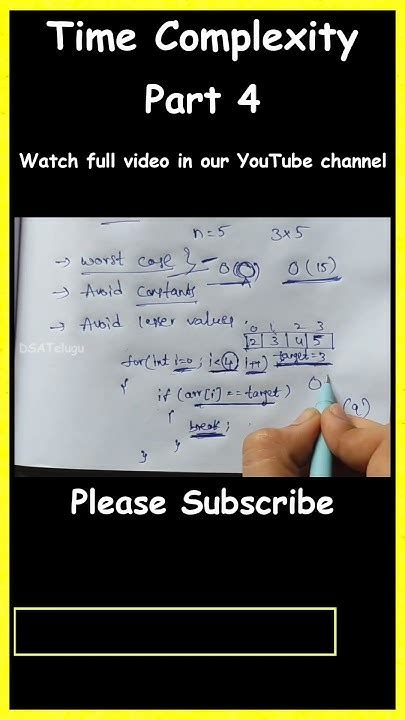 Time Complexity
Part 4
Watch full video in our YouTube channel
n=5 3×5
→ worst case } - O( ) O(15)
→ Avoid constants
→ Avoid lesser values.
0 1 2 3
2 3 4 5
DSATelugu
for(int i=0; i<4; i++) target=3
{
if (arr[i] == target) O
{ (a)
break;
}
}
Please Subscribe